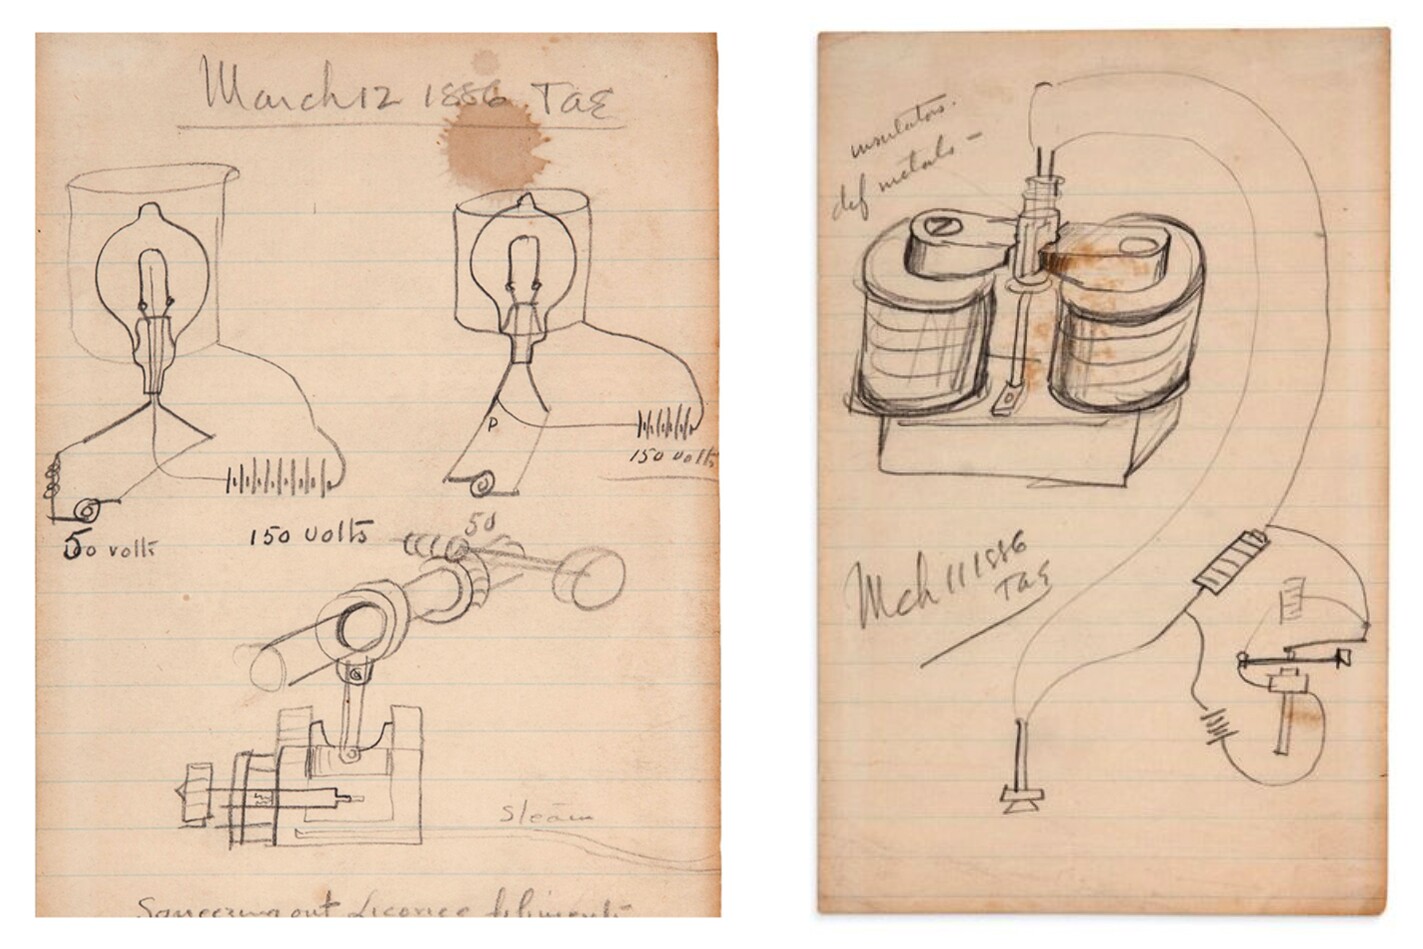 March 12 1886 TAE
P
150 volts
50 volts
150 volts
50
Steam
Squeezing out Licorice filiments
insulators.
def metals -
N
Mch 11 1886
TAE